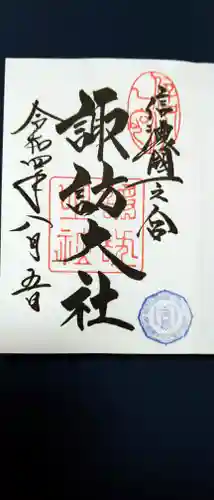 信濃國一之宮
諏訪大社
令和四年八月五日